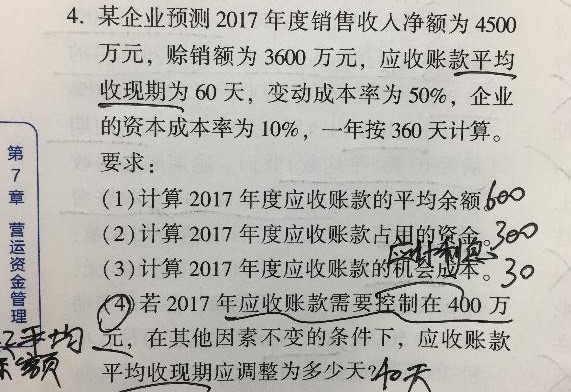 4. 某企业预测 2017 年度销售收入净额为 4500
万元，赊销额为 3600 万元，应收账款平均
收现期为 60 天，变动成本率为 50%，企业
的资本成本率为 10%，一年按 360 天计算。
要求：
(1)计算 2017 年度应收账款的平均余额。600
(2)计算 2017 年度应收账款占用的资金。300
应计利息
(3)计算 2017 年度应收账款的机会成本。30
(4)若 2017 年应收账款需要控制在 400 万
元，在其他因素不变的条件下，应收账款
平均收现期应调整为多少天？40天
平均
余额
第7章 营运资金管理